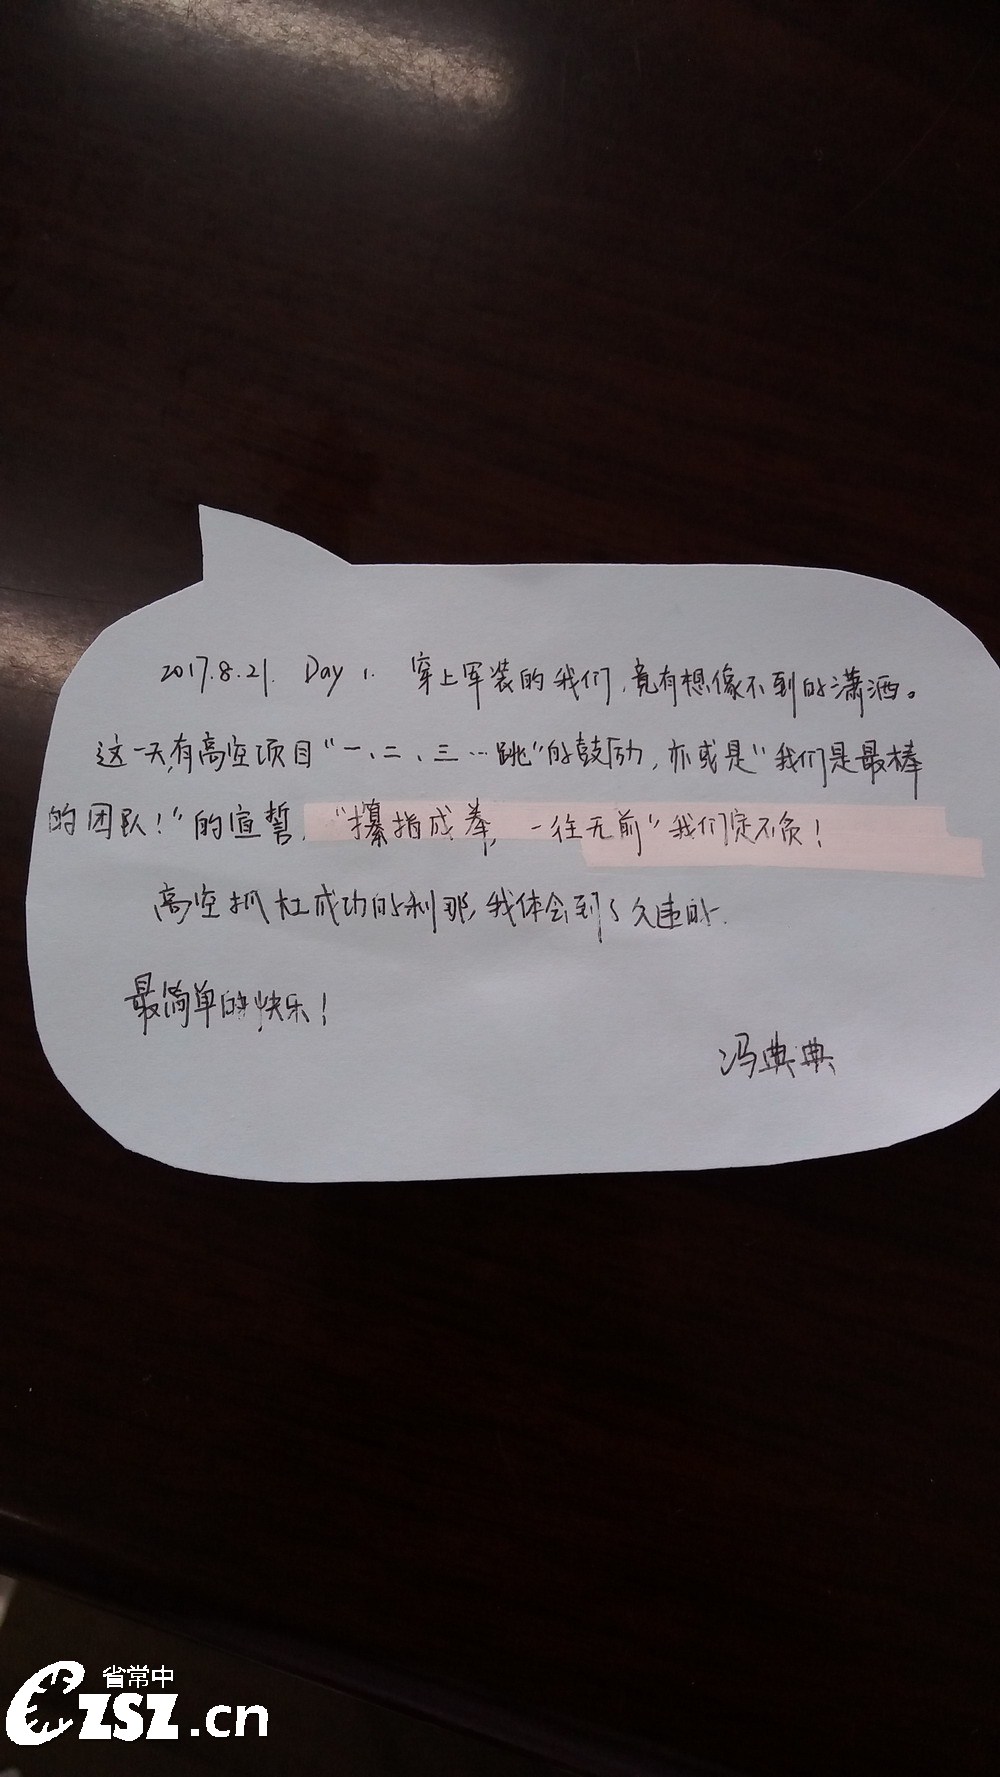 2017.8.21. Day 1. 穿上军装的我们,竟有想像不到的潇洒。
这一天,有高空项目“一、二、三…跳”的鼓励,亦或是“我们是最棒
的团队!”的宣誓,“攥指成拳,一往无前”我们定不负!
高空抓杠成功的刹那,我体会到了久违的.
最简单的快乐!
冯典典
省常中
CZSZ.cn